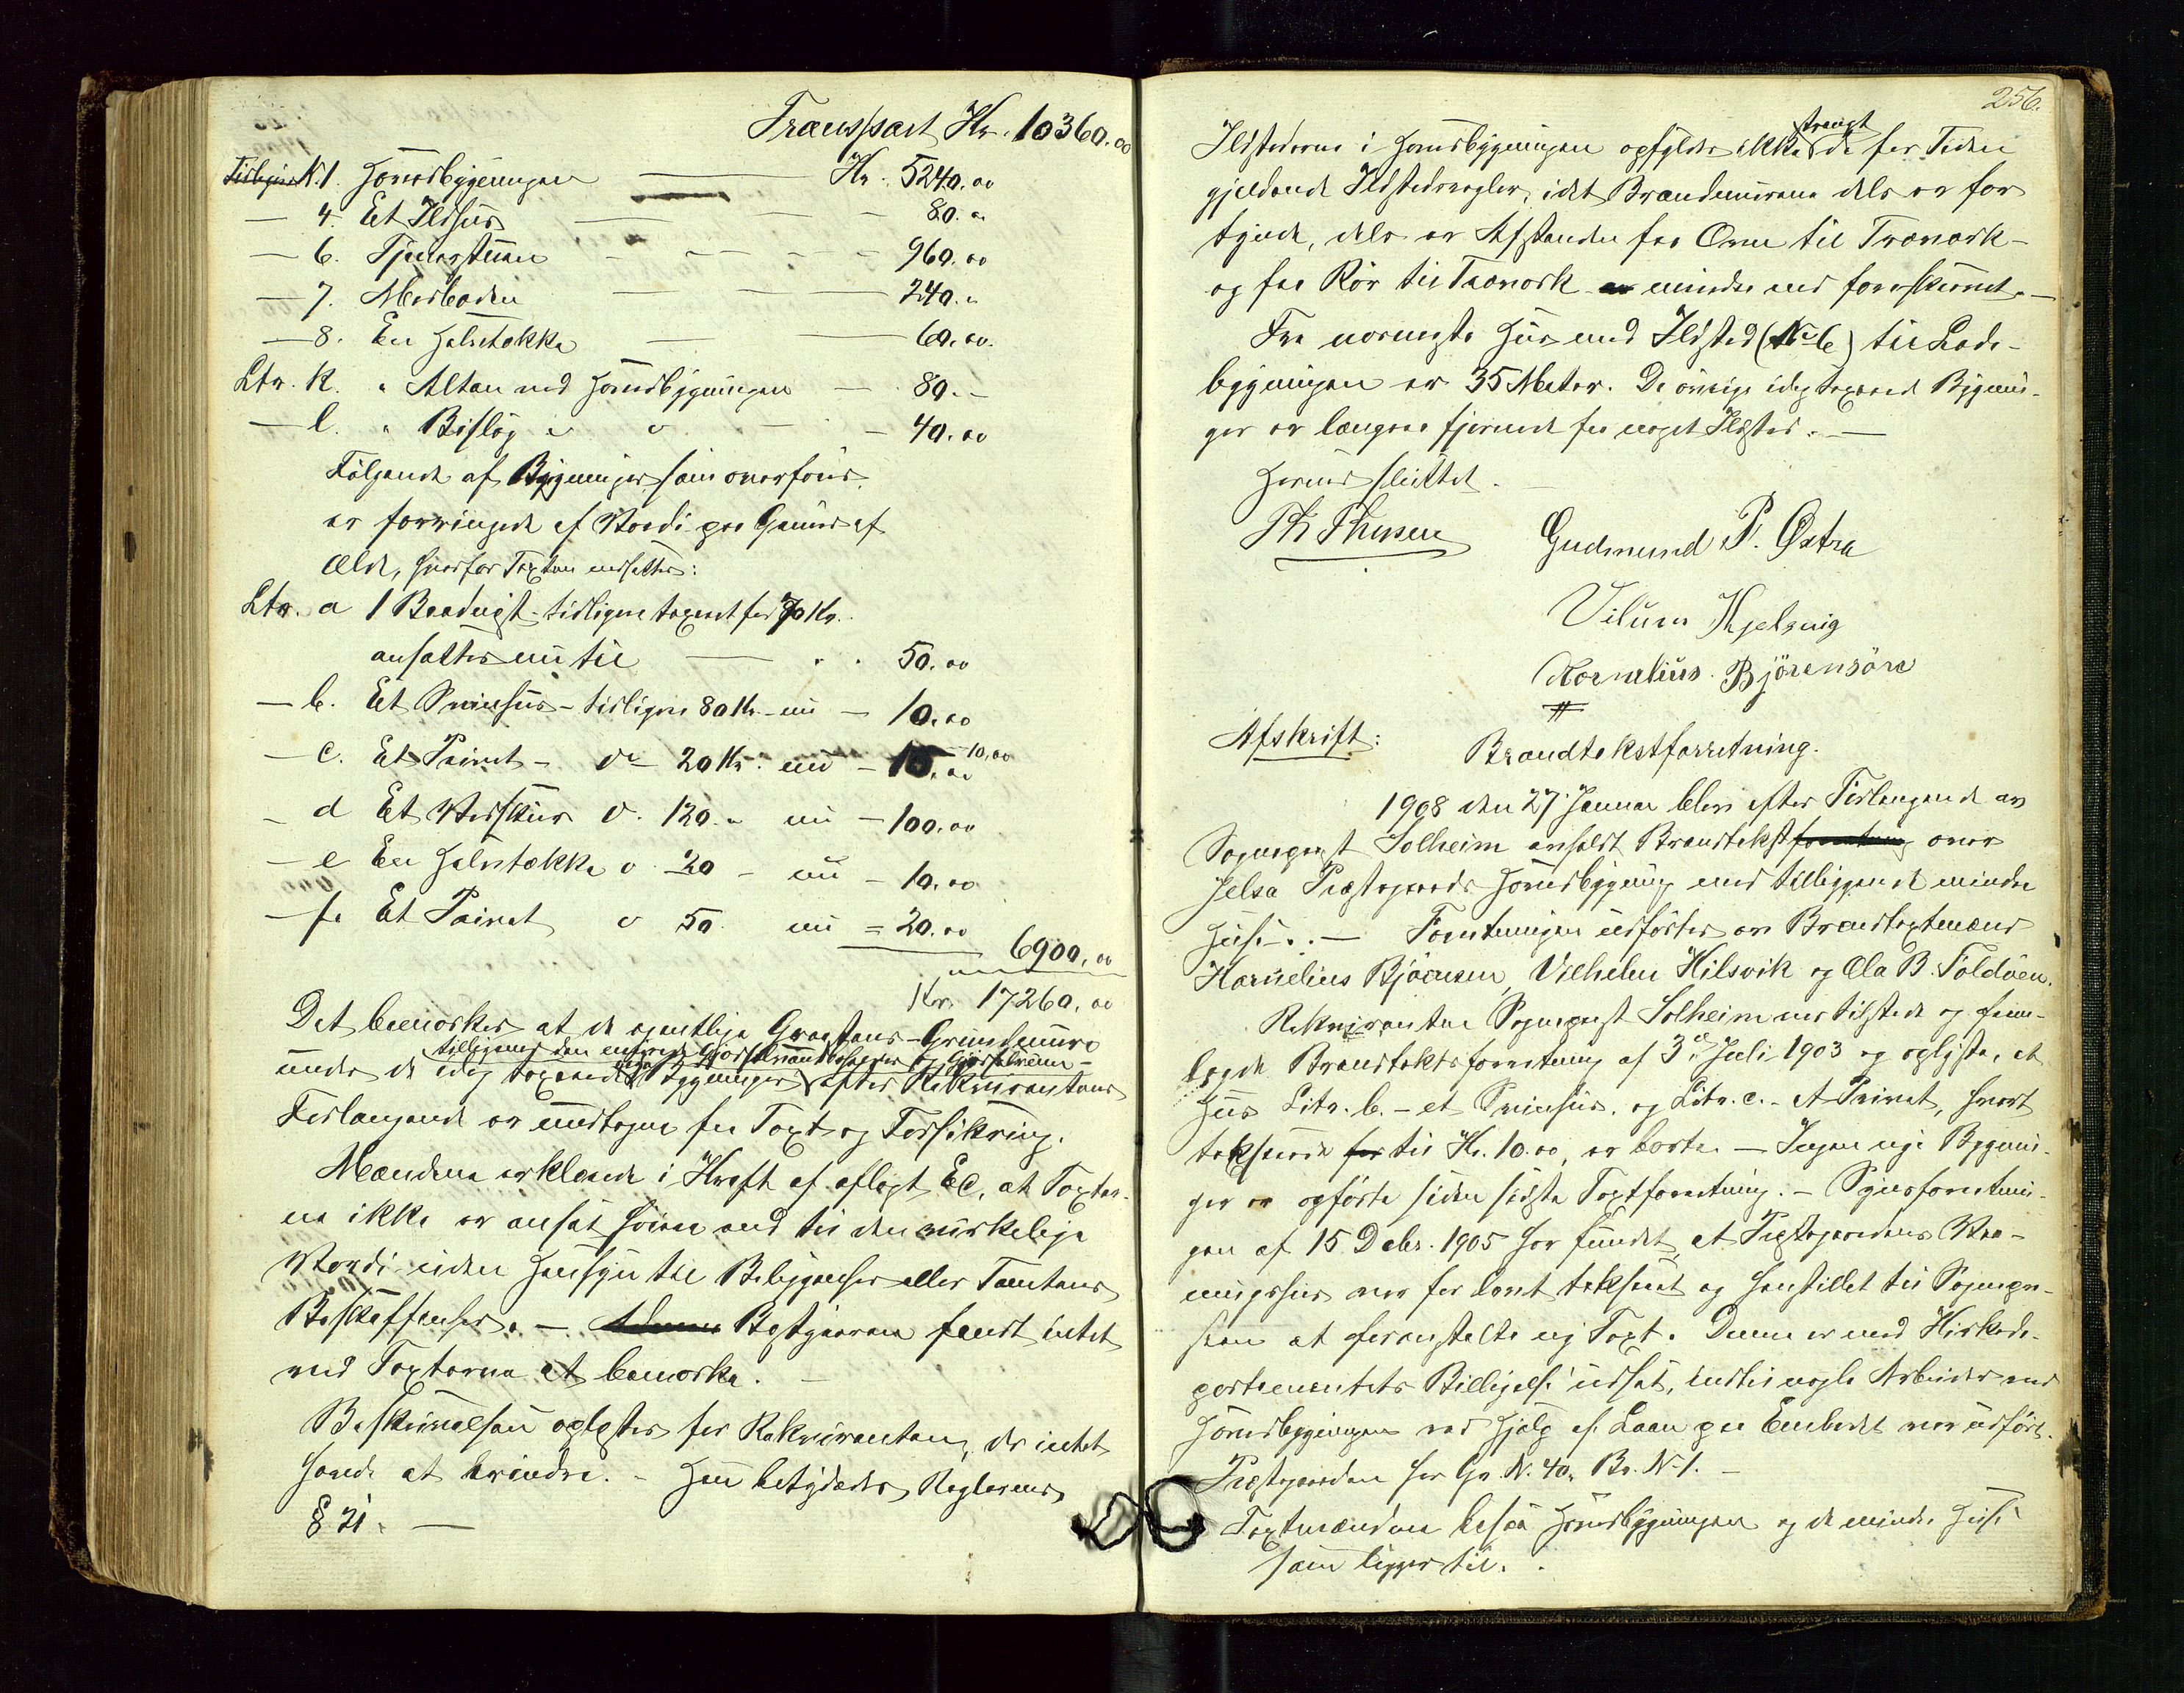 Transport Kr. 10360.00
Tidligere N. 1. Hovedbygningen Kr. 5240.00
— 4. Et Ildhus — 80. „
— 6. Tjenerstuen — 960.00
— 7. Madboden — 240. „
— 8. En Halvtække — 60.00.
Ltr. K. „ Altan ved Hovedbygningen — 80. –
— l. „ Bislag v — 40.00
Følgende af Bygninger som overføres,
er forringede af Værdi paa Grund af
Ælde, hvorfor Taxten nedsættes:
Ltr. a 1 Baadnøst - tidligere taxeret for 70 Kr.
ansættes nu til — 50.00
— b. Et Svinehus - tidligere 80 Kr - nu — 10.00
— c. Et Privet - do 20 Kr. nu — 10.00
— d Et Vedskur d. 120. „ nu — 100.00
— e En Halvtække d 20 - nu — 10.00
— f. Et Privet d 50. nu = 20.00
6900.00
Kr. 17260.00
Det bemærkes at de egentlige Graastens-Grundmure
tilligemed den
under de idag taxerede Bygninger efter Rekvirentens
Forlangende er undtagne fra Taxt og Forsikring.
Mændene erklærede i Kraft af aflagt Ed, at Taxter-
ne ikke er ansat høiere end til den virkelige
Værdi uden Hensyn til Beliggenhed eller Tomtens
Beskaffenhed. — Bestyreren fandt intet
ved Taxterne at bemærke. —
Beskrivelsen oplæstes for Rekvirenten, der intet
havde at erindre. – Han betydedes Reglernes
§ 21. —
256.
Ildstederne i Hovedbygningen opfylder ikke strengt de for Tiden
gjældende Ildstedsregler, idet Brandmurene dels er for
tynde, dels er Afstanden fra Ovn til Træværk –
og fra Rør til Træværk mindre end foreskrevet. —
Fra nærmeste Hus med Ildsted (No 6) til Lade-
bygningen er 35 Meter. De øvrige idag taxerede Bygnin-
ger er længere fjernede fra noget Ildsted. —
Hermed sluttet. –
Th Thusen Gudmund P. Østra
Vilum Hjelsvig
Kornelius Bjørensøre
Afskrift:
Brandtakstforretning.
1908 den 27. Januar blev efter Forlangende av
Sogneprest Solheim avholdt Brandtakstforretning over
Jelsa Præstegaards Hovedbygning med tilliggende mindre
Huse. — Forretningen udførtes av Brandtaxtmænd
Kornelius Bjørnsen, Vilhelm Hilsvik og Ola B. Foldøen.
Rekvirenten Sogneprest Solheim var tilstede og frem-
lagde Brandtakstforretning af 3de Juli 1903 og oplyste, at
Hus Litr. b. – et Svinehus, og Litr. c. – et Privet, hvert
takserede for til Kr. 10.00, er borte. — Ingen nye Bygnin-
ger er opførte siden sidste Taxtforretning. – Synsforretnin-
gen af 15 Debr. 1905 har fundet, at Præstegaardens Vaa-
ningshus var for lavt takseret og henstillet til Sognepre-
sten at foranstalte ny Taxt. Denne er med Kirkede-
partementets Billigelse udsat, indtil nogle Arbeider ved
Hovedbygningen ved Hjelp af Laan paa Embedet var udført.
Præstegaarden har Gr. N. 40, Br. N. 1. –
Taxtmændene besaa Hovedbygningen og de mindre Huse
som ligger til.